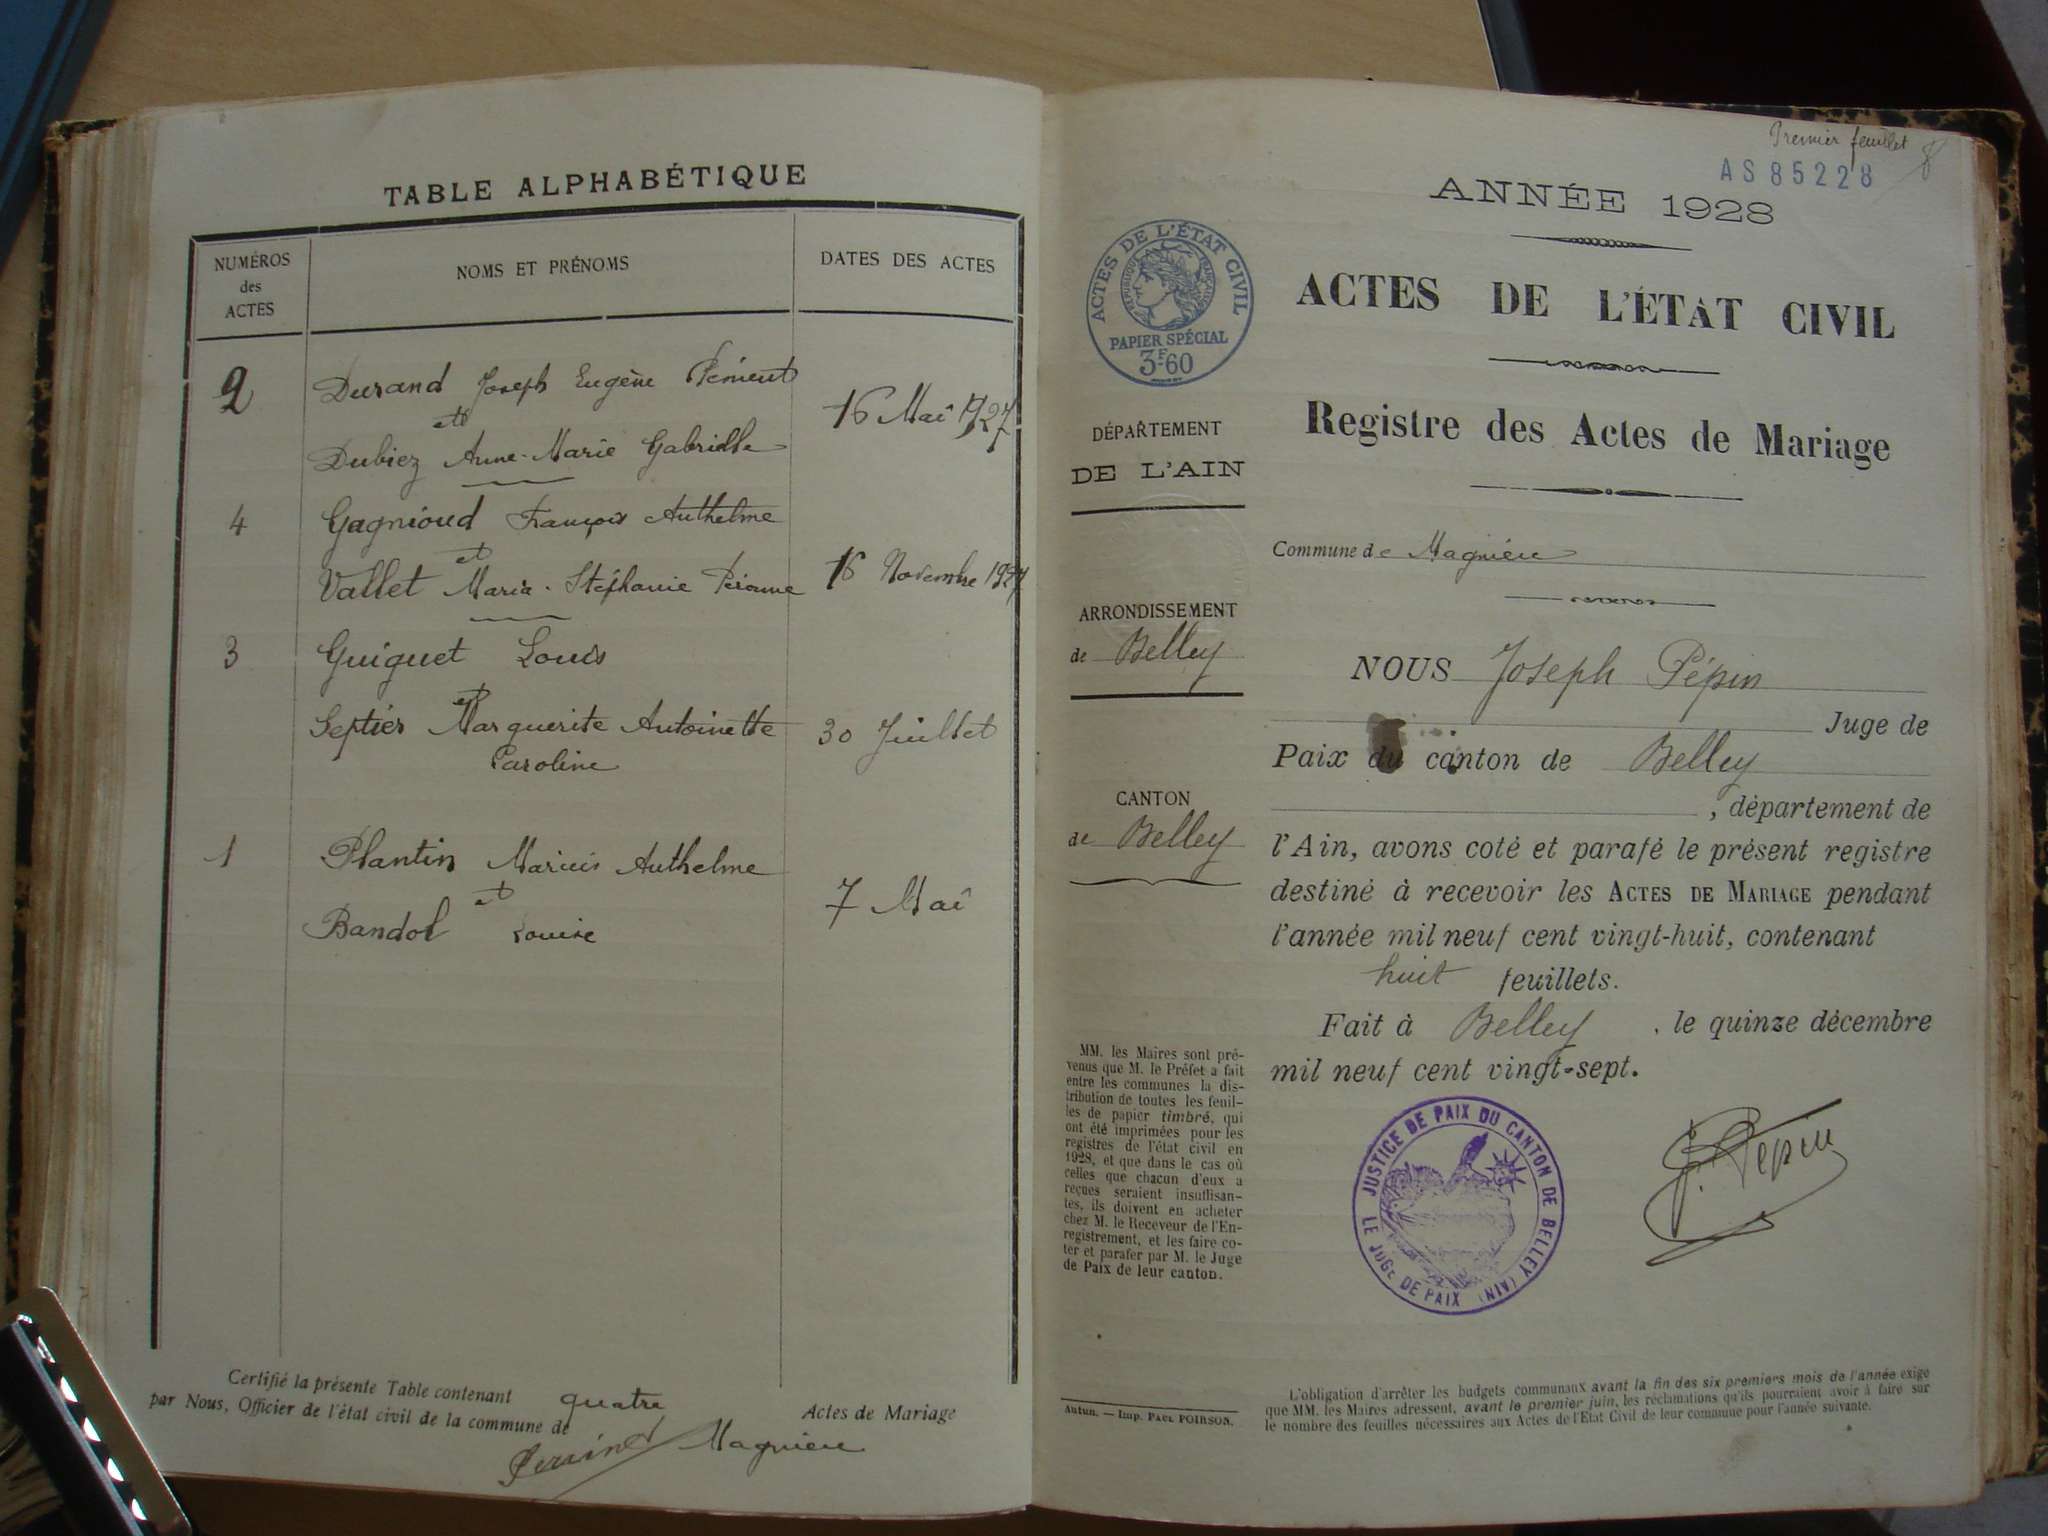 TABLE ALPHABÉTIQUE
NUMÉROS
des
ACTES
NOMS ET PRÉNOMS
DATES DES ACTES
2
Durand Joseph Eugène
et
Dubiez Anne-Marie Gabrielle
16 Mai 1927
4
Gagnioud François Anthelme
et
Vallet Maria-Stéphanie
16 Novembre 1927
3
Guiguet Louis
et
Septier Marguerite Antoinette
Caroline
30 Juillet
1
Plantin Marius Anthelme
et
Bandol Louise
7 Mai
Certifié la présente Table contenant quatre Actes de Mariage
par Nous, Officier de l'état civil de la commune de
Magnieu
Premier feuillet
AS 85228
ANNÉE 1928
ACTES DE L'ÉTAT CIVIL
RÉPUBLIQUE FRANÇAISE
PAPIER SPÉCIAL
3F60
ACTES DE L'ÉTAT CIVIL
Registre des Actes de Mariage
DÉPARTEMENT
DE L'AIN
ARRONDISSEMENT
de Belley
CANTON
de Belley
Commune de Magnieu
NOUS Joseph Pépin
Juge de
Paix du canton de Belley
, département de
l'Ain, avons coté et parafé le présent registre
destiné à recevoir les ACTES DE MARIAGE pendant
l'année mil neuf cent vingt-huit, contenant
huit feuillets.
Fait à Belley, le quinze décembre
mil neuf cent vingt-sept.
MM. les Maires sont pré-
venus que M. le Préfet a fait
entre les communes la dis-
tribution de toutes les feuil-
les de papier timbré, qui
ont été imprimées pour les
registres de l'état civil en
1928, et que dans le cas où
celles que chacun d'eux a
reçues seraient insuffisan-
tes, ils doivent en acheter
chez M. le Receveur de l'En-
registrement, et les faire co-
ter et parafer par M. le Juge
de Paix de leur canton.
JUSTICE DE PAIX DU CANTON DE BELLEY (AIN)
LE JUGE DE PAIX
J. Pépin
Autun. — Imp. PAUL POIRSON.
L'obligation d'arrêter les budgets communaux avant la fin des six premiers mois de l'année exige
que MM. les Maires adressent, avant le premier juin, les réclamations qu'ils pourraient avoir à faire sur
le nombre des feuilles nécessaires aux Actes de l'Etat Civil de leur commune pour l'année suivante.